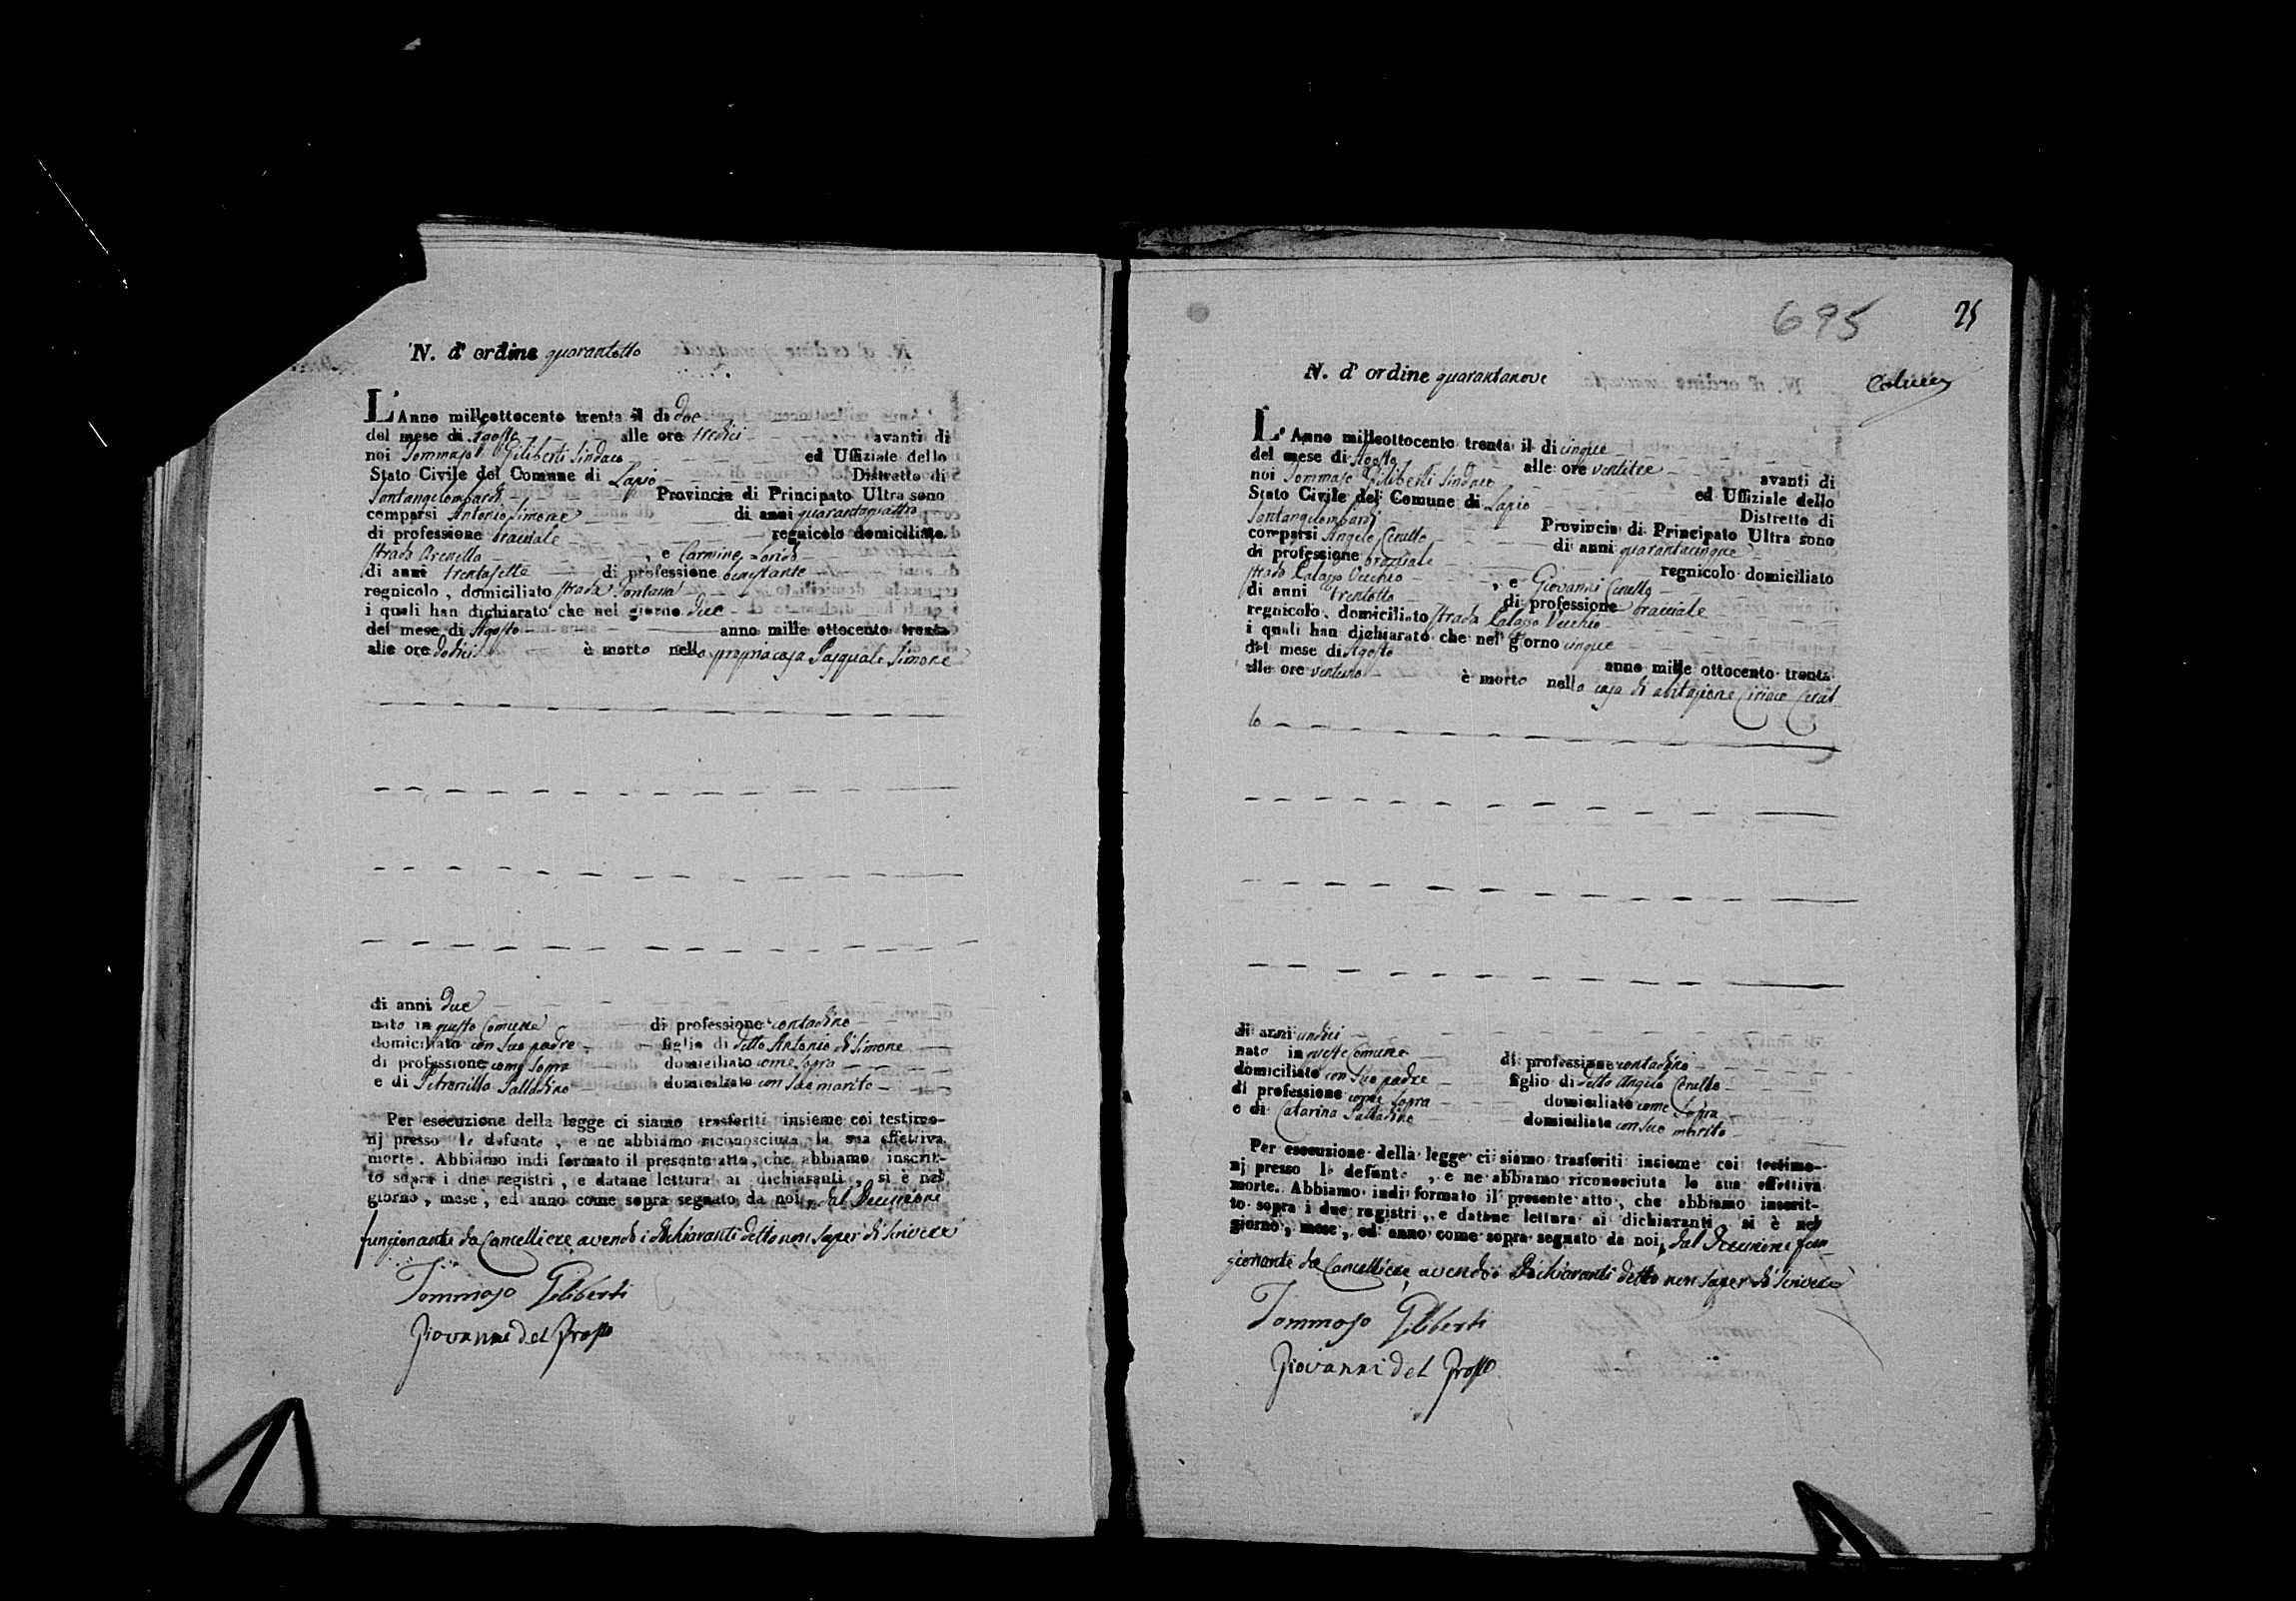 N. d' ordine quarantotto
L' Anno milleottocento trenta il di due
del mese di Agosto alle ore tredici avanti di
noi Tommaso Giliberti Sindaco ed Uffiziale dello
Stato Civile del Comune di Lapio Distretto di
Santangelombardi Provincia di Principato Ultra sono
comparsi Antonio Simone di anni quarantaquattro
di professione bracciale regnicolo domiciliato
strada Arenella , e Carmine
di anni trentasette di professione benestante
regnicolo , domiciliato strada Fontana
i quali han dichiarato che nel giorno due
del mese di Agosto anno mille ottocento trenta
alle ore dodici è morto nella propria casa Pasquale Simone
di anni due
nato in questo Comune di professione contadino
domiciliato con suo padre figlio di detto Antonio di Simone
di professione come sopra domiciliato come sopra
e di Petronilla Palladino domiciliato con suo marito
Per esecuzione della legge ci siamo trasferiti insieme coi testimo-
nj presso lo defunto , e ne abbiamo riconosciuta la sua effettiva
morte. Abbiamo indi formato il presente atto, che abbiamo inscrit-
to sopra i due registri , e datane lettura ai dichiaranti , si è nel
giorno , mese , ed anno come sopra segnato da noi, dal Decurione
funzionante da Cancelliere, avendo i dichiaranti detto non saper di scrivere
Tommaso Giliberti
Giovanni del Grosso
695
25
N. d' ordine quarantanove
L' Anno milleottocento trenta il di cinque
del mese di Agosto alle ore ventitre avanti di
noi Tommaso Giliberti Sindaco ed Uffiziale dello
Stato Civile del Comune di Lapio Distretto di
Santangelombardi Provincia di Principato Ultra sono
comparsi Angelo Cerullo di anni quarantacinque
di professione bracciale regnicolo domiciliato
strada Palazzo Vecchio , e Giovanni Cerullo
di anni trentotto di professione bracciale
regnicolo, domiciliato strada Palazzo Vecchio
i quali han dichiarato che nel giorno cinque
del mese di Agosto anno mille ottocento trenta
alle ore ventuno è morto nella casa di abitazione Ciriaco Cerul-
lo
di anni undici
nato in questo Comune di professione contadino
domiciliato con suo padre figlio di detto Angelo Cerullo
di professione come sopra domiciliato come sopra
e di Catarina Palladino domiciliata con suo marito
Per esecuzione della legge ci siamo trasferiti insieme coi testimo-
nj presso lo defunto , e ne abbiamo riconosciuta la sua effettiva
morte. Abbiamo indi formato il presente atto , che abbiamo inscrit-
to sopra i due registri , e datane lettura ai dichiaranti , si è nel
giorno , mese , ed anno come sopra segnato da noi, dal Decurione fun-
zionante da Cancelliere, avendo i dichiaranti detto non saper di scrivere
Tommaso Giliberti
Giovanni del Grosso